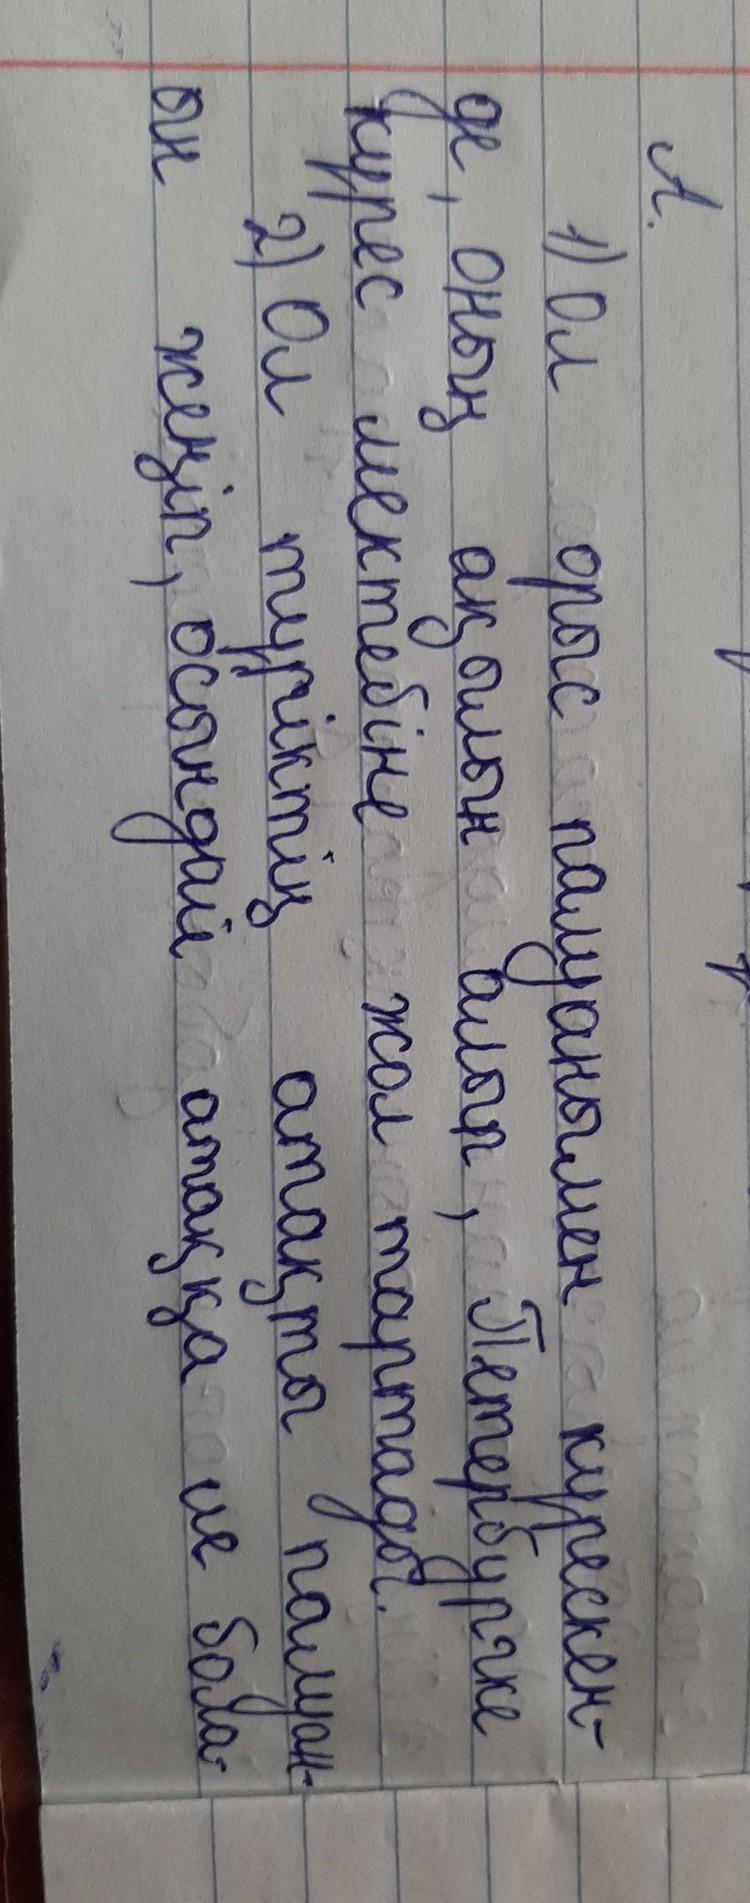 А.
1) Ол орыс палуанымен күрескен-
де, оның ақылын алып, Петербургке
күрес мектебіне жол тартады.
2) Ол түріктің атақты палуан-
ын жеңіп, осындай атаққа ие бола-